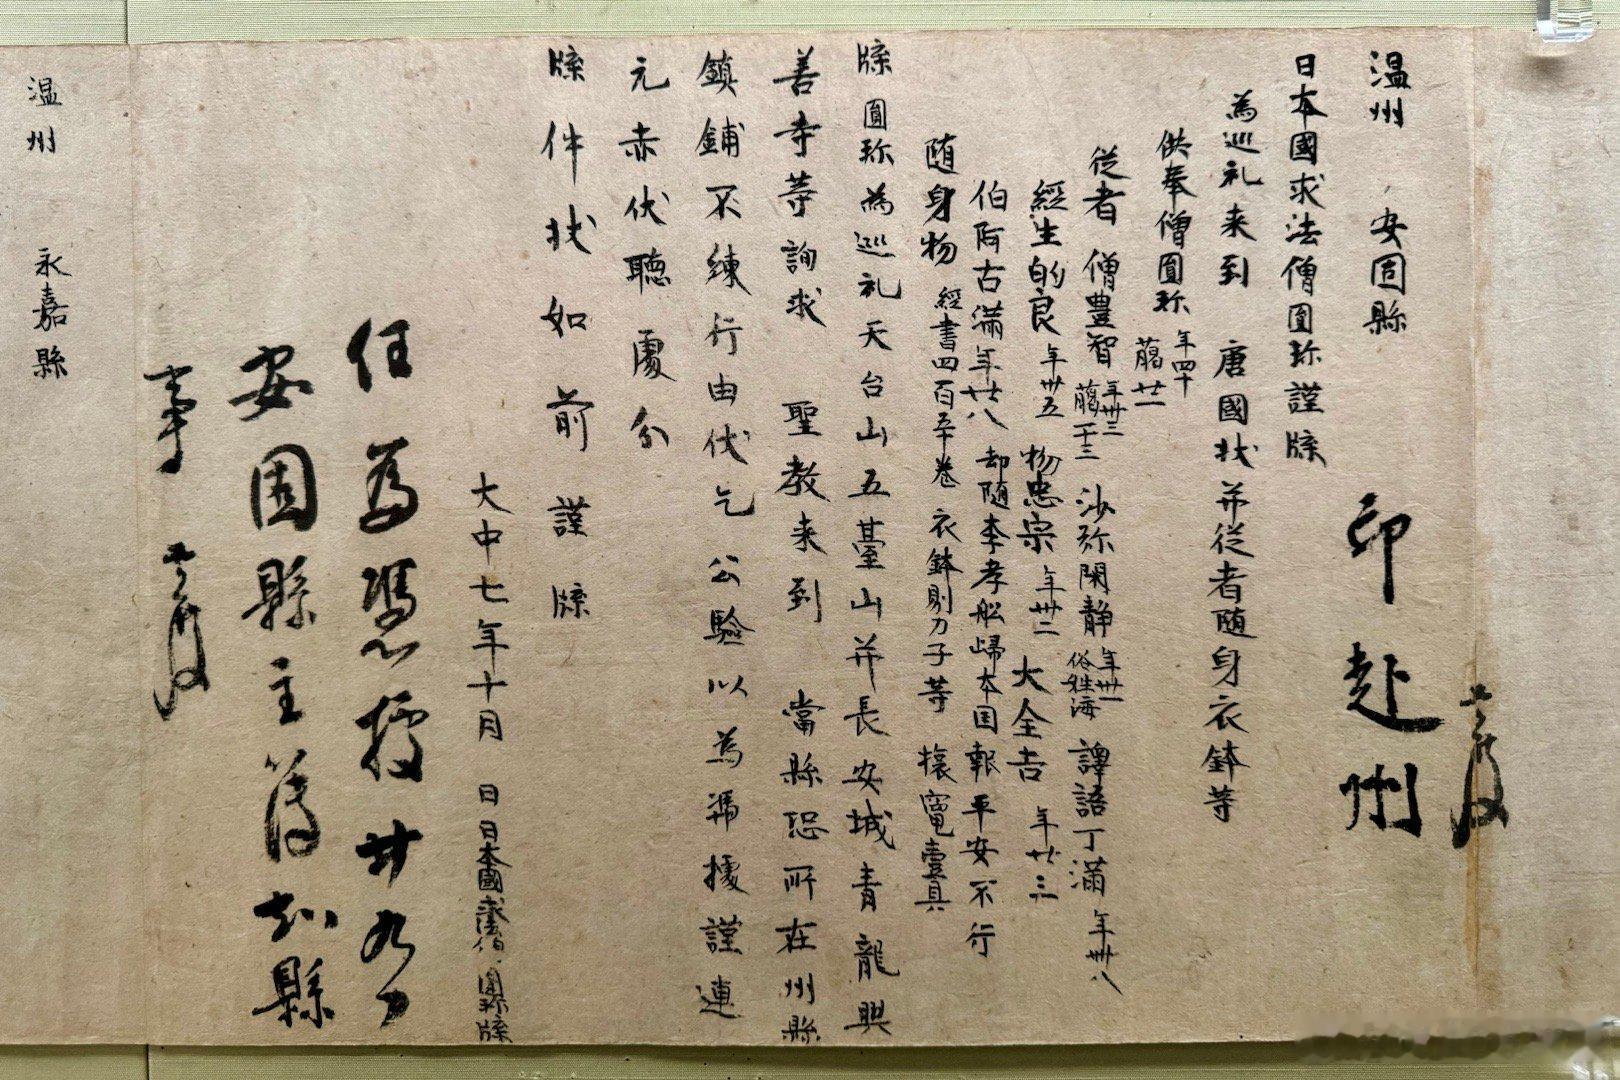 温州 安固縣 印赴州
日本國求法僧圓珎謹牒
為巡礼来到 唐國状并従者随身衣鉢等
供奉僧圓珎 年四十 﨟廿一
従者 僧豊智 年卅三 﨟十三 沙弥閑静 年卅一 俗姓海 譯語丁滿 年卅八
經生的良 年卅五 物忠宗 年卅二 大全吉 年廿三
伯阿古滿 年廿八 却随李孝舩歸本国報平安不行
随身物 經書四百五十卷 衣鉢剔刀子等 壹具
牒圓珎為巡礼天台山五臺山并長安城青龍興
善寺等詢求 聖教来到 當縣恐所在州縣
鎮鋪不練行由伏乞公驗以為憑據謹連
元赤伏聽處分
牒件状如前謹牒
大中七年十月 日 日本國求法僧圓珎牒
任為憑據廿九日
安固縣主簿知縣
事
温州 永嘉縣